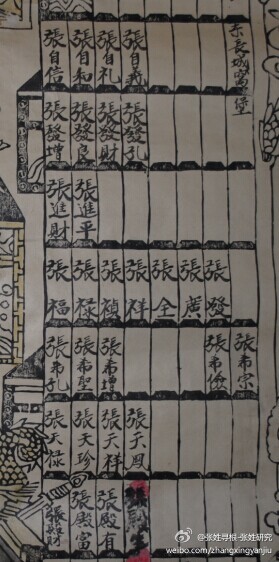 东長城窩堡
張自義
張自礼
張自和
張自信
張發孔
張發財
張發良
張發增
張進平
張進財
張發
張廣
張全
張祥
張禎
張禄
張福
張希宗
張希儉
張希增
張希聖
張希孔
張天鳳
張天祥
張天珍
張天禄
張殿
張殿有
張殿富
張殿財
@张姓寻根-张姓研究
weibo.com/zhangxingyanjiu